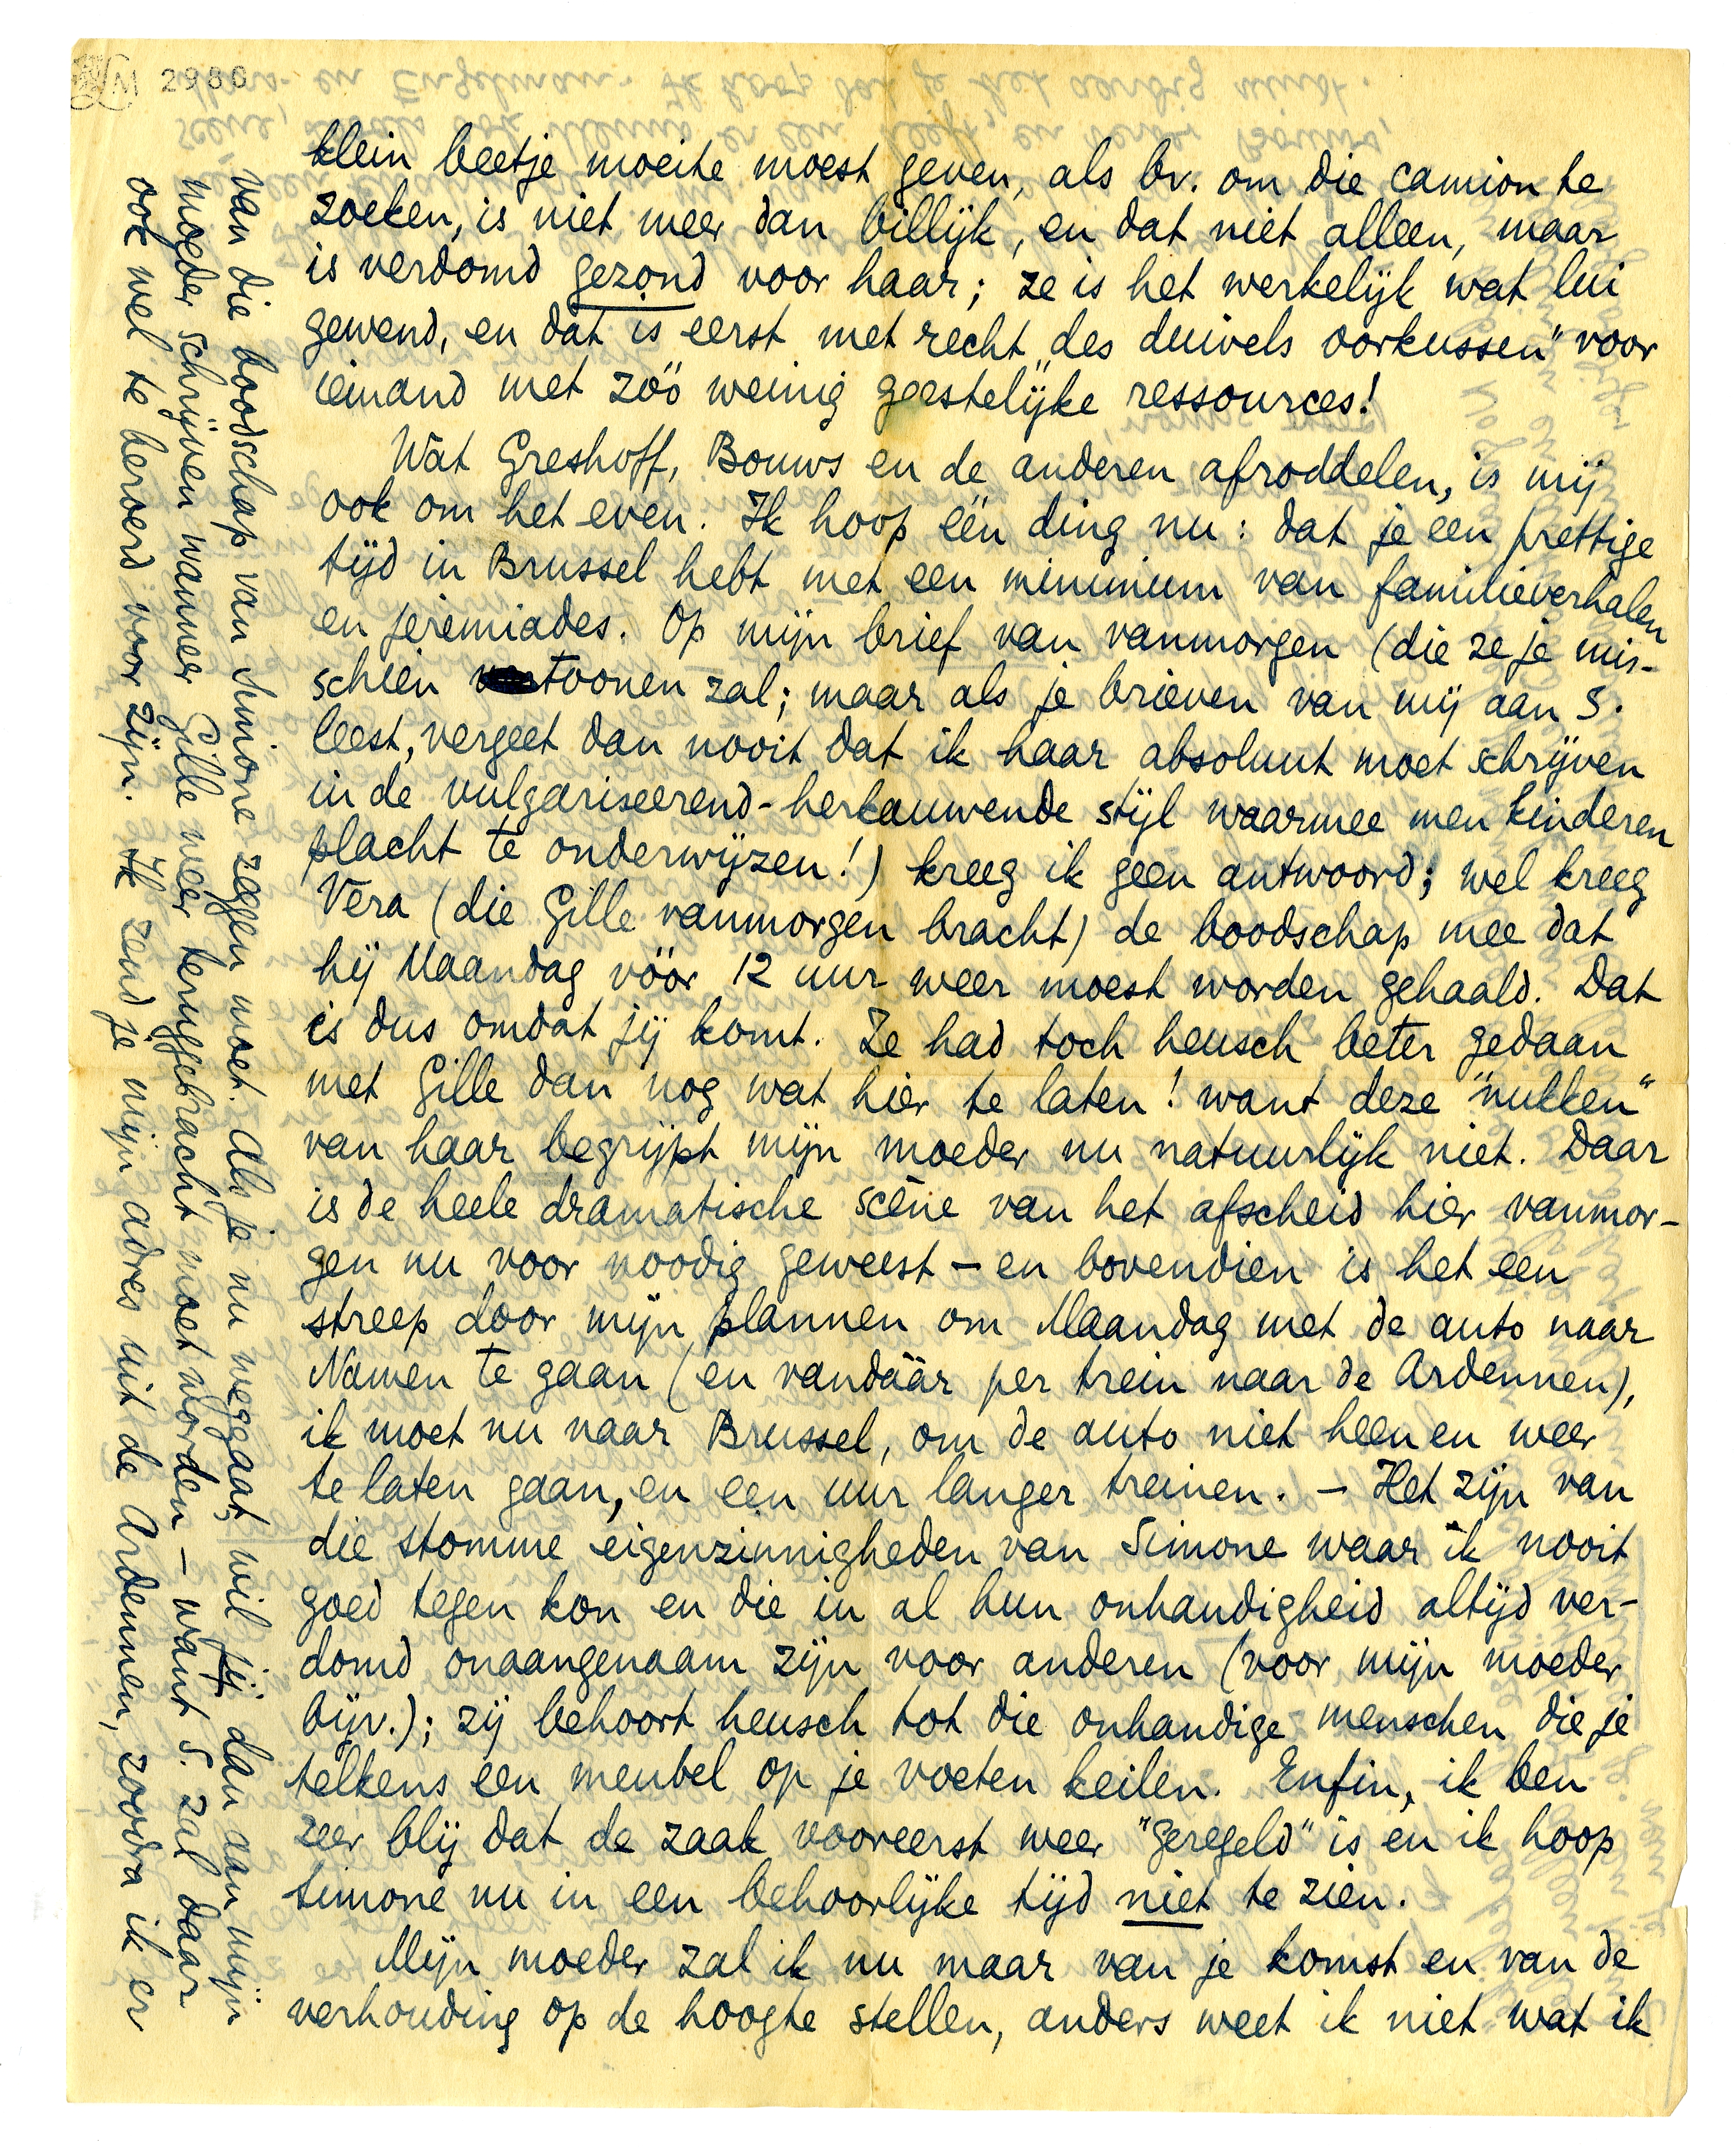 2980
klein beetje moeite moest geven, als bv. om die camion te
zoeken, is niet meer dan billijk, en dat niet alleen, maar
is verdomd gezond voor haar; ze is het werkelijk wat lui
gewend, en dat is eerst met recht „des duivels oorkussen" voor
iemand met zóó weinig geestelijke ressources!
Wat Greshoff, Bouws en de anderen afroddelen, is mij
ook om het even. Ik hoop één ding nu: dat je een prettige
tijd in Brussel hebt met een minimum van familieverhalen
en jeremiades. Op mijn brief van vanmorgen (die ze je mis-
schien toonen zal; maar als je brieven van mij aan S.
leest, vergeet dan nooit dat ik haar absoluut moet schrijven
in de vulgariseerend-herkauwende stijl waarmee men kinderen
placht te onderwijzen!) kreeg ik geen antwoord; wel kreeg
Vera (die Gille vanmorgen bracht) de boodschap mee dat
hij Maandag vóór 12 uur weer moest worden gehaald. Dat
is dus omdat jij komt. Ze had toch heusch beter gedaan
met Gille dan nog wat hier te laten! want deze "nukken"
van haar begrijpt mijn moeder nu natuurlijk niet. Daar
is de heele dramatische scène van het afscheid hier vanmor-
gen nu voor noodig geweest – en bovendien is het een
streep door mijn plannen om Maandag met de auto naar
Namen te gaan (en vandáár per trein naar de Ardennen),
ik moet nu naar Brussel, om de auto niet heen en weer
te laten gaan, en een uur langer treinen. – Het zijn van
die stomme eigenzinnigheden van Simone waar ik nooit
goed tegen kon en die in al hun onhandigheid altijd ver-
domd onaangenaam zijn voor anderen (voor mijn moeder
bijv.); zij behoort heusch tot die onhandige menschen die je
telkens een meubel op je voeten keilen. Enfin, ik ben
zeer blij dat de zaak vooreerst weer "geregeld" is en ik hoop
Simone nu in een behoorlijke tijd niet te zien.
Mijn moeder zal ik nu maar van je komst en van de
verhouding op de hoogte stellen, anders weet ik niet wat ik
van die boodschap van Simone zeggen moet. Als je nu weggaat, wil jij dan aan mijn
moeder schrijven wanneer Gille weer teruggebracht moet worden – want S. zal daar
ook wel te beroerd voor zijn. Ik zend je mijn adres uit de Ardennen, zoodra ik er